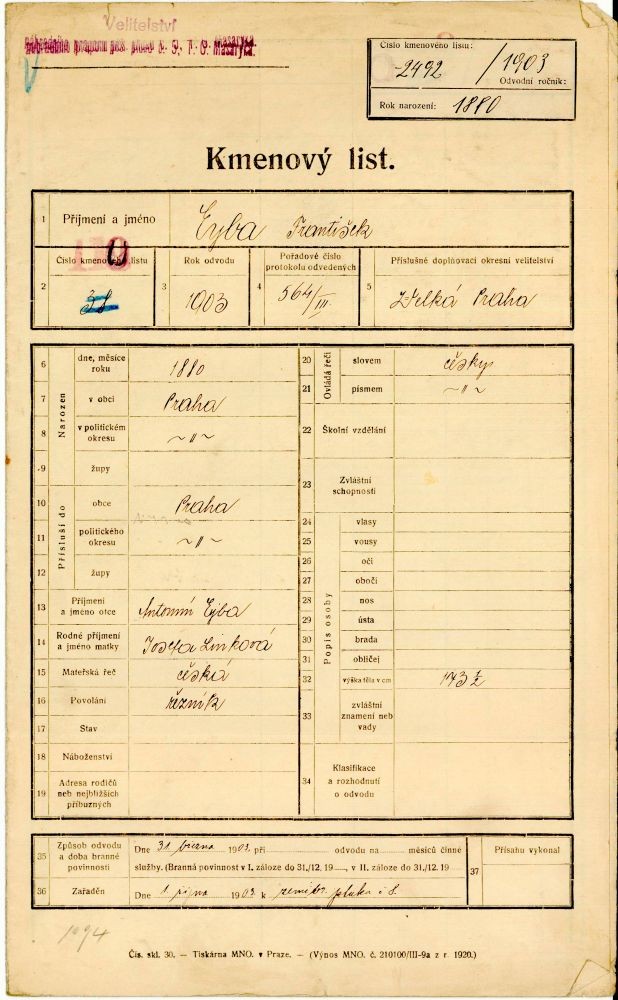 Velitelství
náhradního praporu pěš. pluku č. 5. T. G. Masaryka.
Číslo kmenového listu:
2492 / 1903
Odvodní ročník:
Rok narození: 1880
Kmenový list.
1 Příjmení a jméno Eyba František
2 Číslo kmenového listu
3 Rok odvodu 1903
4 Pořadové číslo protokolu odvedených 564/III.
5 Příslušné doplňovací okresní velitelství Praha
Narozen
6 dne, měsíce roku 1880
7 v obci Praha
8 v politickém okresu ~ " ~
9 župy
Přísluší do
10 obce Praha
11 politického okresu ~ " ~
12 župy
13 Příjmení a jméno otce Antonín Eyba
14 Rodné příjmení a jméno matky Josefa Linková
15 Mateřská řeč česká
16 Povolání řezník
17 Stav
18 Náboženství
19 Adresa rodičů neb nejbližších příbuzných
Ovládá řeči
20 slovem česky
21 písmem ~ " ~
22 Školní vzdělání
23 Zvláštní schopnosti
Popis osoby
24 vlasy
25 vousy
26 oči
27 obočí
28 nos
29 ústa
30 brada
31 obličej
32 výška těla v cm 173 ½
33 zvláštní znamení neb vady
34 Klasifikace a rozhodnutí o odvodu
35 Způsob odvodu a doba branné povinnosti
Dne 31 března 1903, při odvodu na měsíců činné
služby. (Branná povinnost v I. záloze do 31./12. 19 , v II. záloze do 31./12. 19
36 Zařaděn Dne 1 října 1903 k zeměbr. pluku č 8.
37 Přísahu vykonal
1094
Čís. skl. 30. — Tiskárna MNO. v Praze. — (Výnos MNO. č. 210100/III-9a z r. 1920.)